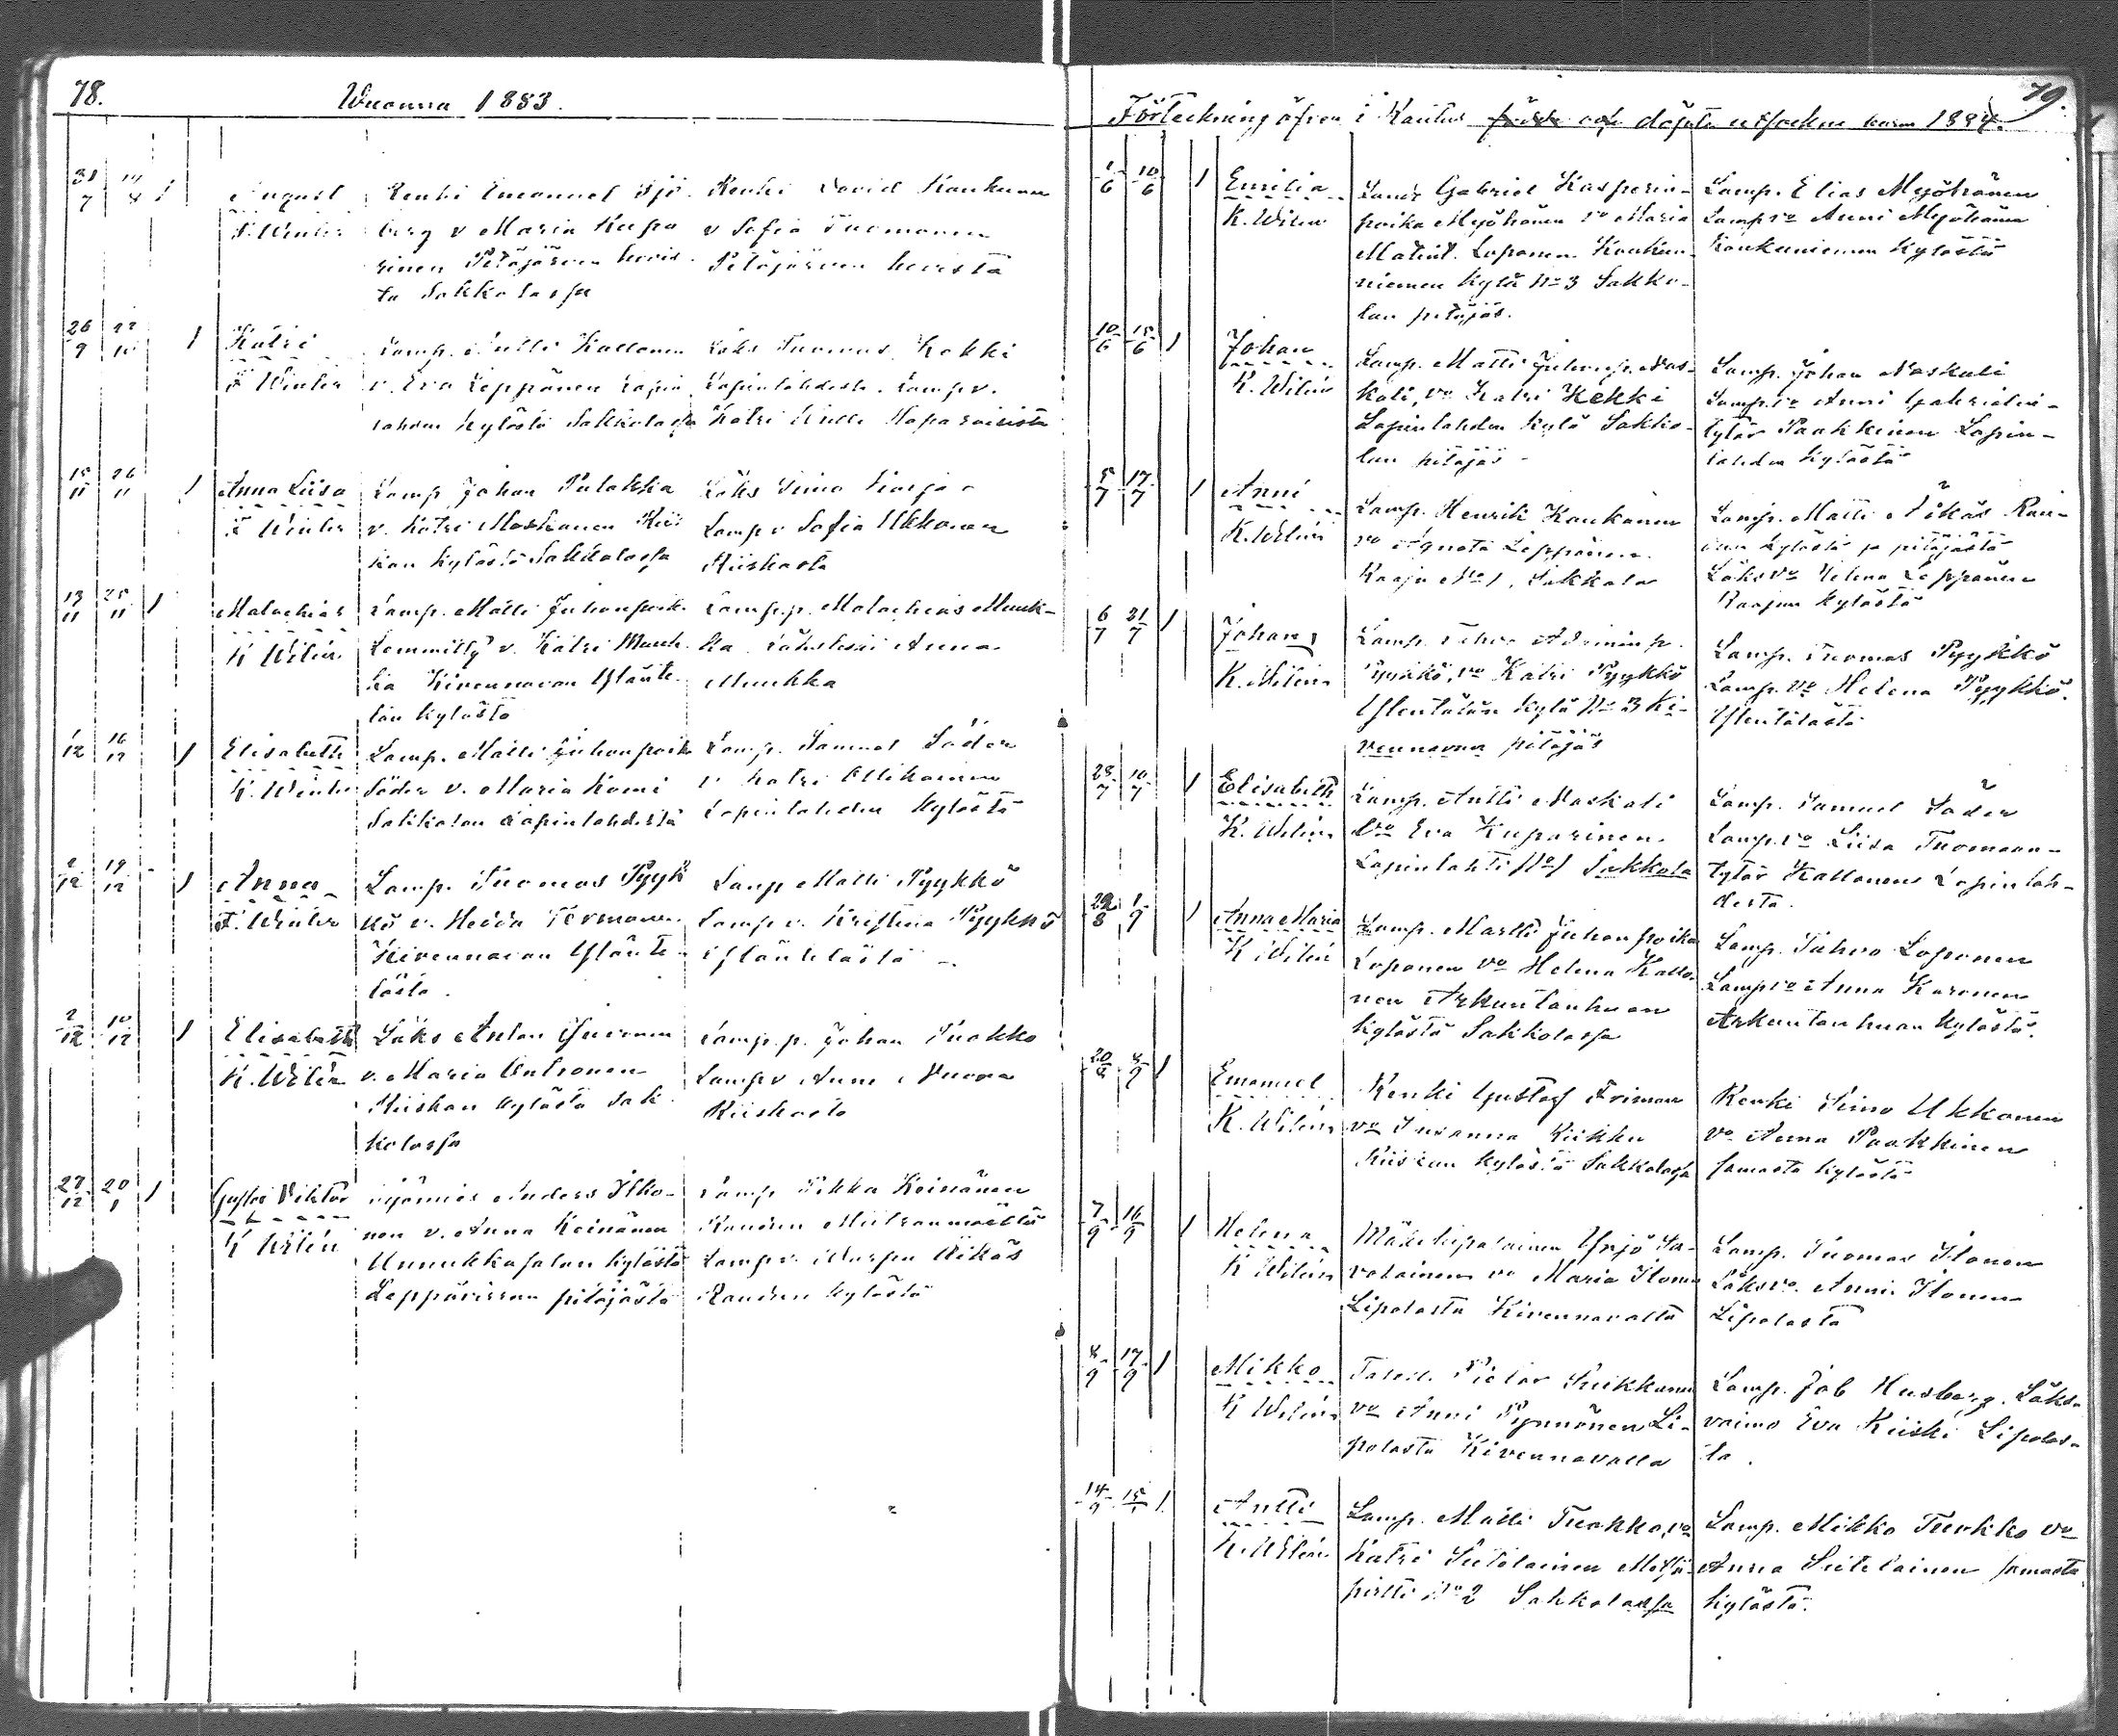 78.
Wuonna 1883.
31/7 14/8 1
August
F. Winter
Renki Emanuel Sjö-
berg v Maria Kupa
rinen Petäjärven hovis-
ta Sakkolassa
Renki David Kaukunen
v Sofia Tuomonen
Petäjärven hovista
26/9 22/10 1
Katri
F Winter
Lamp. Antti Kallonen
v. Eva Leppänen Lapin
lahden kylästä Sakkolassa
Löks Tuomas Kekki
Lapinlahdesta. Lamp v.
Katri Haparaisista
15/11 26/11 1
Anna Liisa
F Winter
Lamp Johan Pulakka
v. Katri Moskanen Kiis
kan kylästä Sakkolassa
Löks Simo
Lamp v Sofia Ukkonen
Kiiskasta
13/11 25/11 1
Malachias
K Wilén
Lamp. Matti Juhonpoik.
Lommitty v. Katri Muuk-
ka Kivennavan Ylänte-
län kylästä
Lamp.p. Malachias Muuk-
ka Löksleski Anna
Muukka
1/12 16/12 1
Elisabeth
K. Winter
Lamp. Matti Juhonpoik
Söder v. Maria Komi
Sakkolan Lapinlahdesta
Lamp. Samuel Söder
v Katri Ollikainen
Lapinlahden kylästä
2/12 19/12 1
Anna
F. Winter
Lamp. Tuomas Pyyk
kö v. Hedda Termonen
Kivennavan Yläntе-
lästä.
Lamp Matti Pyykkö
Lamp v. Kristina Pyykkö
Yläntelästä
2/12 10/12 1
Elisabeth
K. Wilén
Löks Anton
v. Maria Antonen
Kiiskan kylästä Sak
kolassa
Lamp.p. Johan Tuokko
Lamp v Anni
Kiiskasta
27/12 20/1 1
Gustav Viktor
K Wilén
Työmies Anders Ilho-
nen v. Anna Keinänen
Unnukkasalon kylästä
Leppävirran pitäjästä
Lamp Pekka Keinänen
Raudun
Lamp v. Warpu Wikäs
Raudun kylästä
79.
Förteckning öfver i Rautus födde och döpte utsockne barn 1884.
1/6 10/6 1
Emilia
K. Wilén
Lamp Gabriel Kasperin-
poika Myöhänen vo Maria
Matint. Loponen Kaukun-
niemen kylä No 3 Sakko-
lan pitäjäs.
Lamp. Elias Myöhänen
Lamp vo Anni Myöhänen
Kaukuniemen kylästä
10/6 15/6 1
Johan
K. Wilén
Lamp. Matti Juhonp. Nas-
kali, vo Katri Kekki
Lapinlahden kylä Sakko-
lan pitäjäs
Lamp. Johan Naskali
Lamp. vo Anni Gabrielin-
tytär Paakkinen Lapin-
lahden kylästä
5/7 17/7 1
Anni
K. Wilén
Lamp. Henrik Kaukonen
vo Agneta Leppänen
Raaju No 1, Sakkola
Lamp. Matti Wikäs Rau-
dun kylästä ja pitäjästä
Löks vo Helena Leppänen
Raajun kylästä
6/7 21/7 1
Johan
K. Wilén
Lamp. Tahvo Adaminp.
Pyykkö, vo Katri Pyykkö
Yläntälän kylä No 3 Ki-
vennavan pitäjäs
Lamp. Tuomas Pyykkö
Lamp. vo Helena Pyykkö
Yläntälästä
28/7 10/7 1
Elisabeth
K. Wilén
Lamp. Antti Naskali
vo Eva Kuparinen
Lapinlahti No 1 Sakkola
Lamp. Samuel Söder
Lamp. vo Liisa Tuomaan-
tytär Kallonen Lapinlah-
desta.
22/8 1/9 1
Anna Maria
K. Wilén
Lamp. Martti Juhonpoika
Loponen vo Helena Kallo-
nen Arkuntanhuan
kylästä Sakkolassa
Lamp. Tahvo Loponen
Lamp vo Anna Karonen
Arkuntanhuan kylästä.
20/8 8/9 1
Emanuel
K. Wilén
Renki Gustaf Friman
vo Susanna Kiikku
Kiiskan kylästä Sakkolassa
Renki Simo Ukkonen
vo Anna Paakkinen
samasta kylästä
7/9 16/9 1
Helena
K Wilén
Mäkitupalainen Yrjö Sa-
volainen vo Maria Ilonen
Lipolasta Kivennavalta
Lamp. Tuomas Ilonen
Löks vo. Anni Ilonen
Lipolasta
8/9 17/9 1
Mikko
K Wilén
Pietar Suikkanen
vo Anni Pynnönen Li-
polasta Kivennavalla
Lamp. Job Husberg. Löks.
vaimo Eva Kiiski Lipolas-
ta.
14/9 15/9 1
Antti
K. Wilén
Lamp. Matti Tuokko, vo
Katri Siitolainen Metsä-
pirtti No 2 Sakkolassa
Lamp. Mikko Tuokko vo
Anna Siitelainen samasta
kylästä.